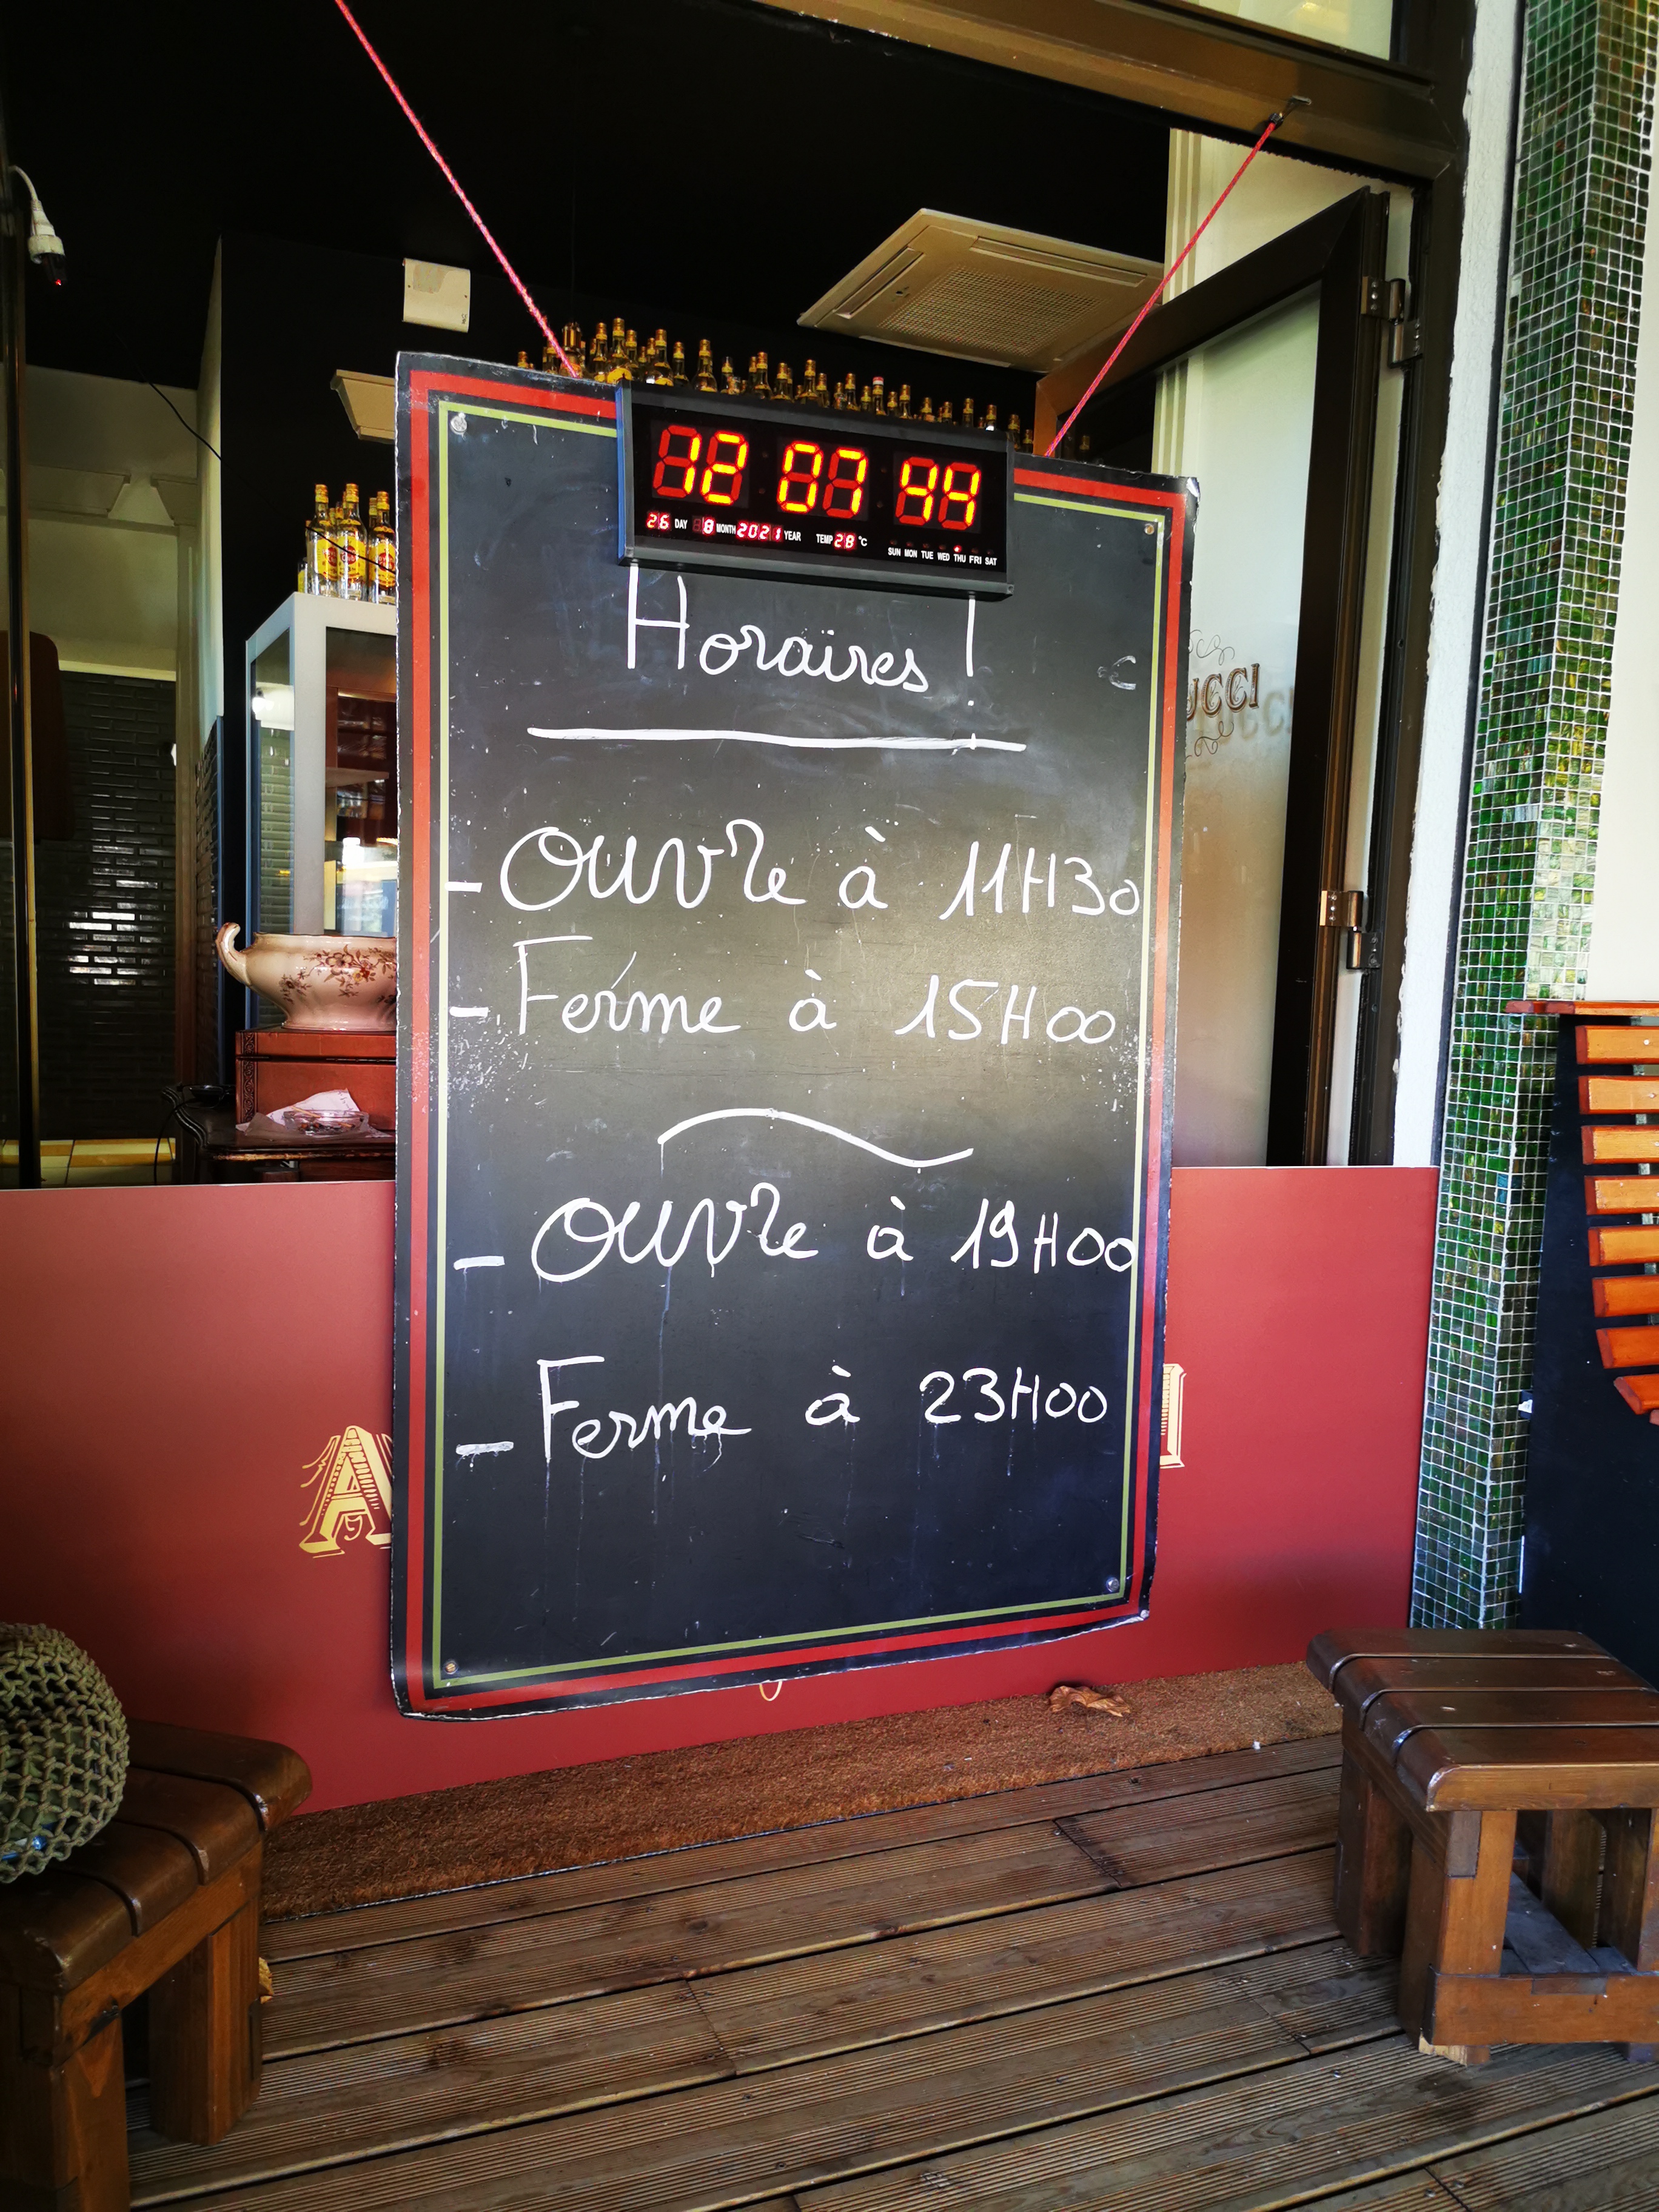 12 07 44
26 DAY 8 MONTH 2021 YEAR TEMP 28 °C
SUN MON TUE WED THU FRI SAT
Horaïres !
€
UCCI
- Ouvre à 11H30
- Ferme à 15H00
- Ouvre à 19H00
- Ferme à 23H00
A